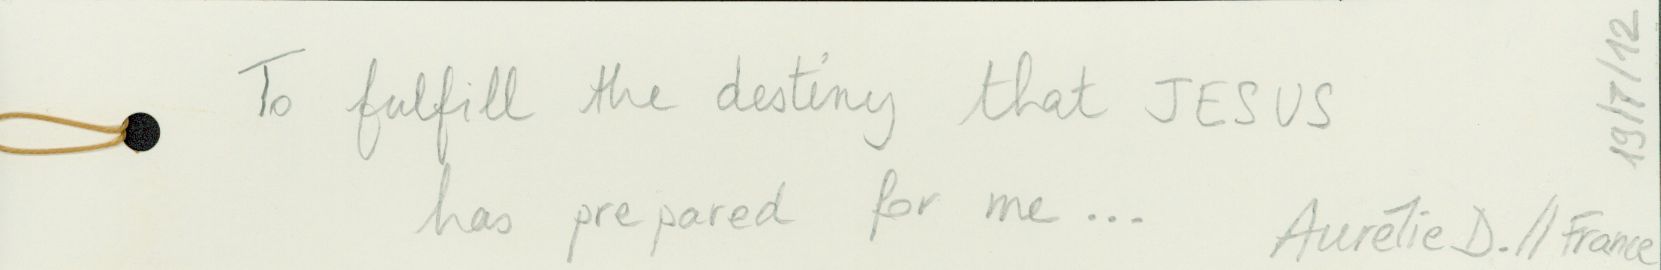 To fulfill the destiny that JESUS
has prepared for me...
Aurélie D. // France
19/7/12